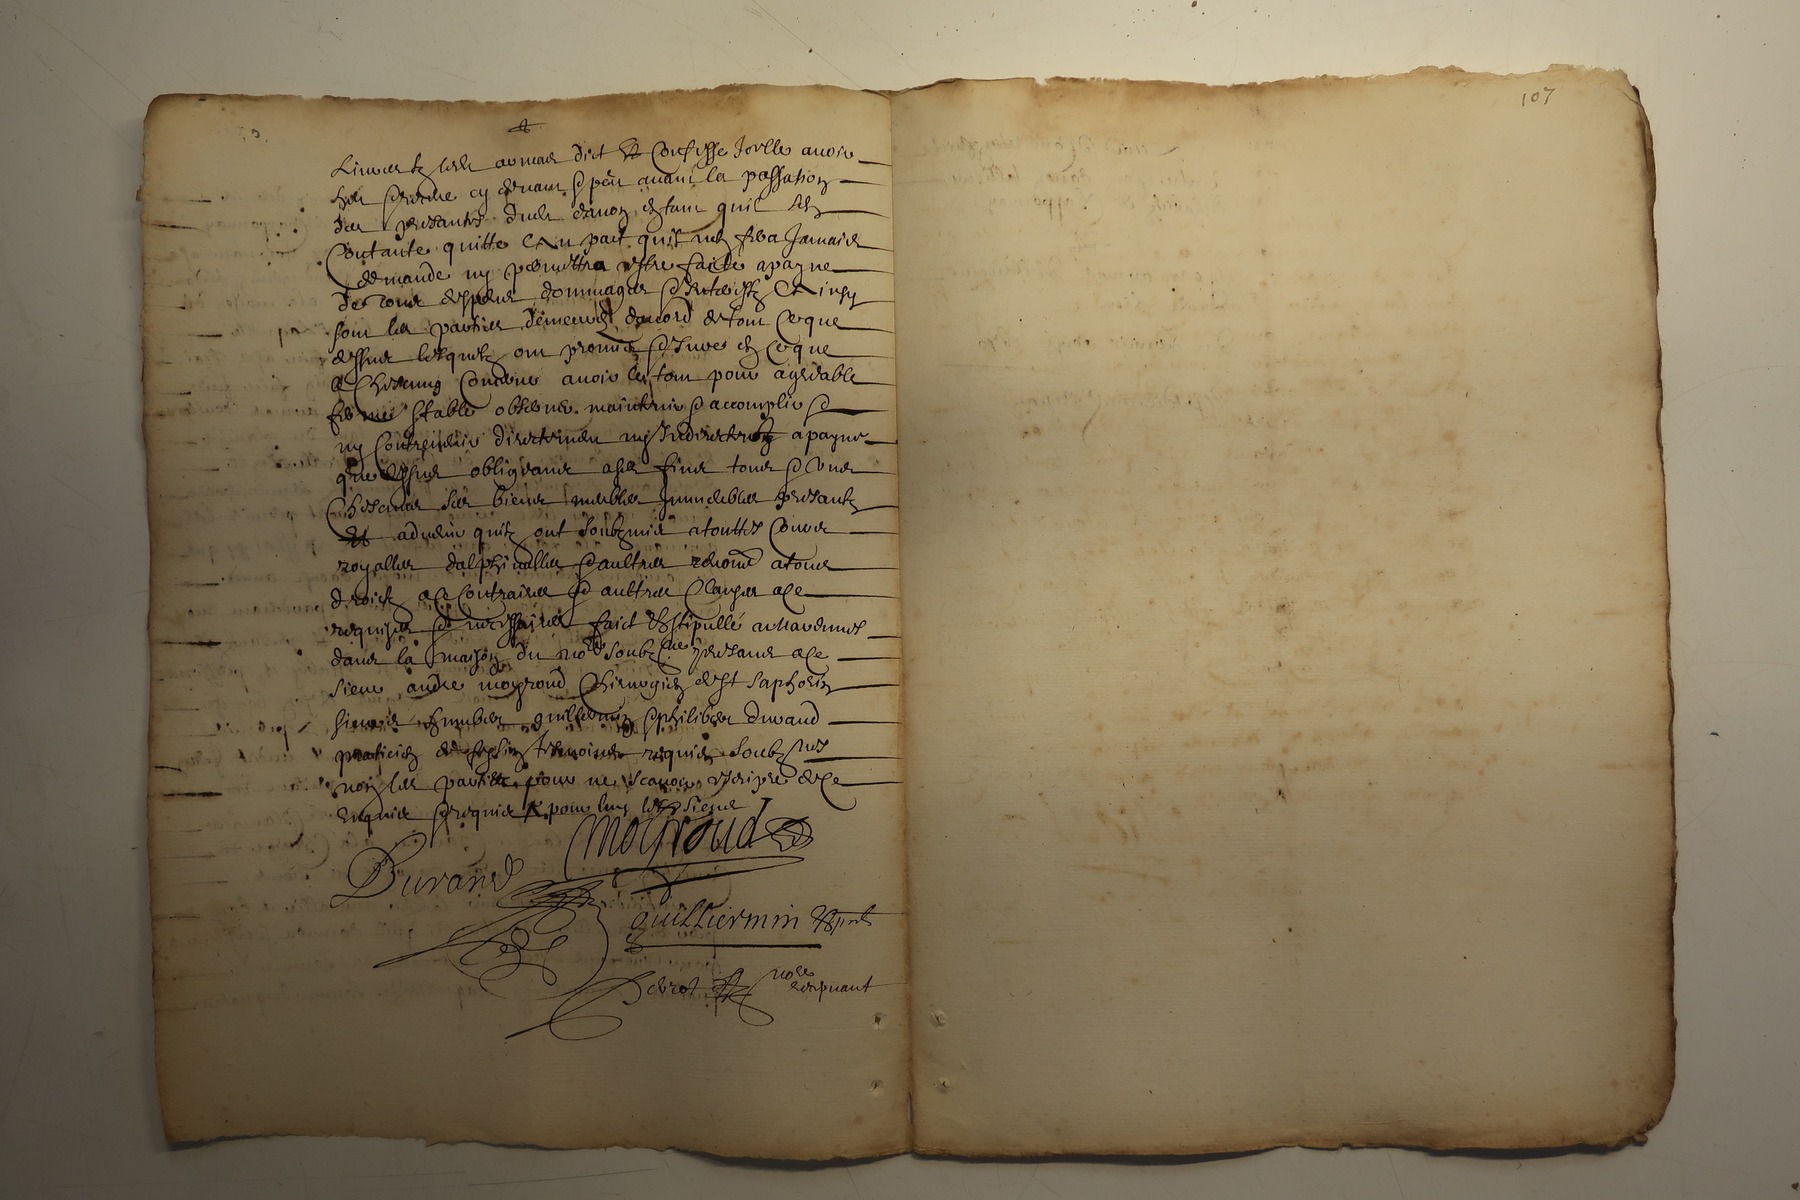 107
dict et confesse Icelle avoir
receu cy devant & peu avant la passation
des presantes dont en tant quil
contante quitte avec pact quil nen fera Jamais
demande ny permettra estre faicte a payne
de tous despens dommages & Interestz Et ainsy
sont les parties demeurés dacord de tout ce que
dessus lesquelz ont promis & Juré en ce que
chescung concerne avoir le tout pour agreable
ferme stable observer maintenir & accomplir &
ny contrevenir directement ny Indirectement a payne
que dessus obligeant a ses fins tous & uns
chescuns ses biens meubles Immeubles presantz
et advenir quilz ont soubzmis a touttes cours
royalles dalphinalles & aultres renoncé a tous
droictz a ce contraires & aultres clauses a ce
requises & necessaires faict et stipullé
dans la maison du nore soubzne presans a ce
sieur andre moyroud Chirurgien de St Saphorin
humbert guilliermin & philibert durand
praticien tesmoins requis soubznes
non les parties pour ne scavoir escripre de ce
enquis & requis
moyroud
Durand
guilliermin
nore recepvant